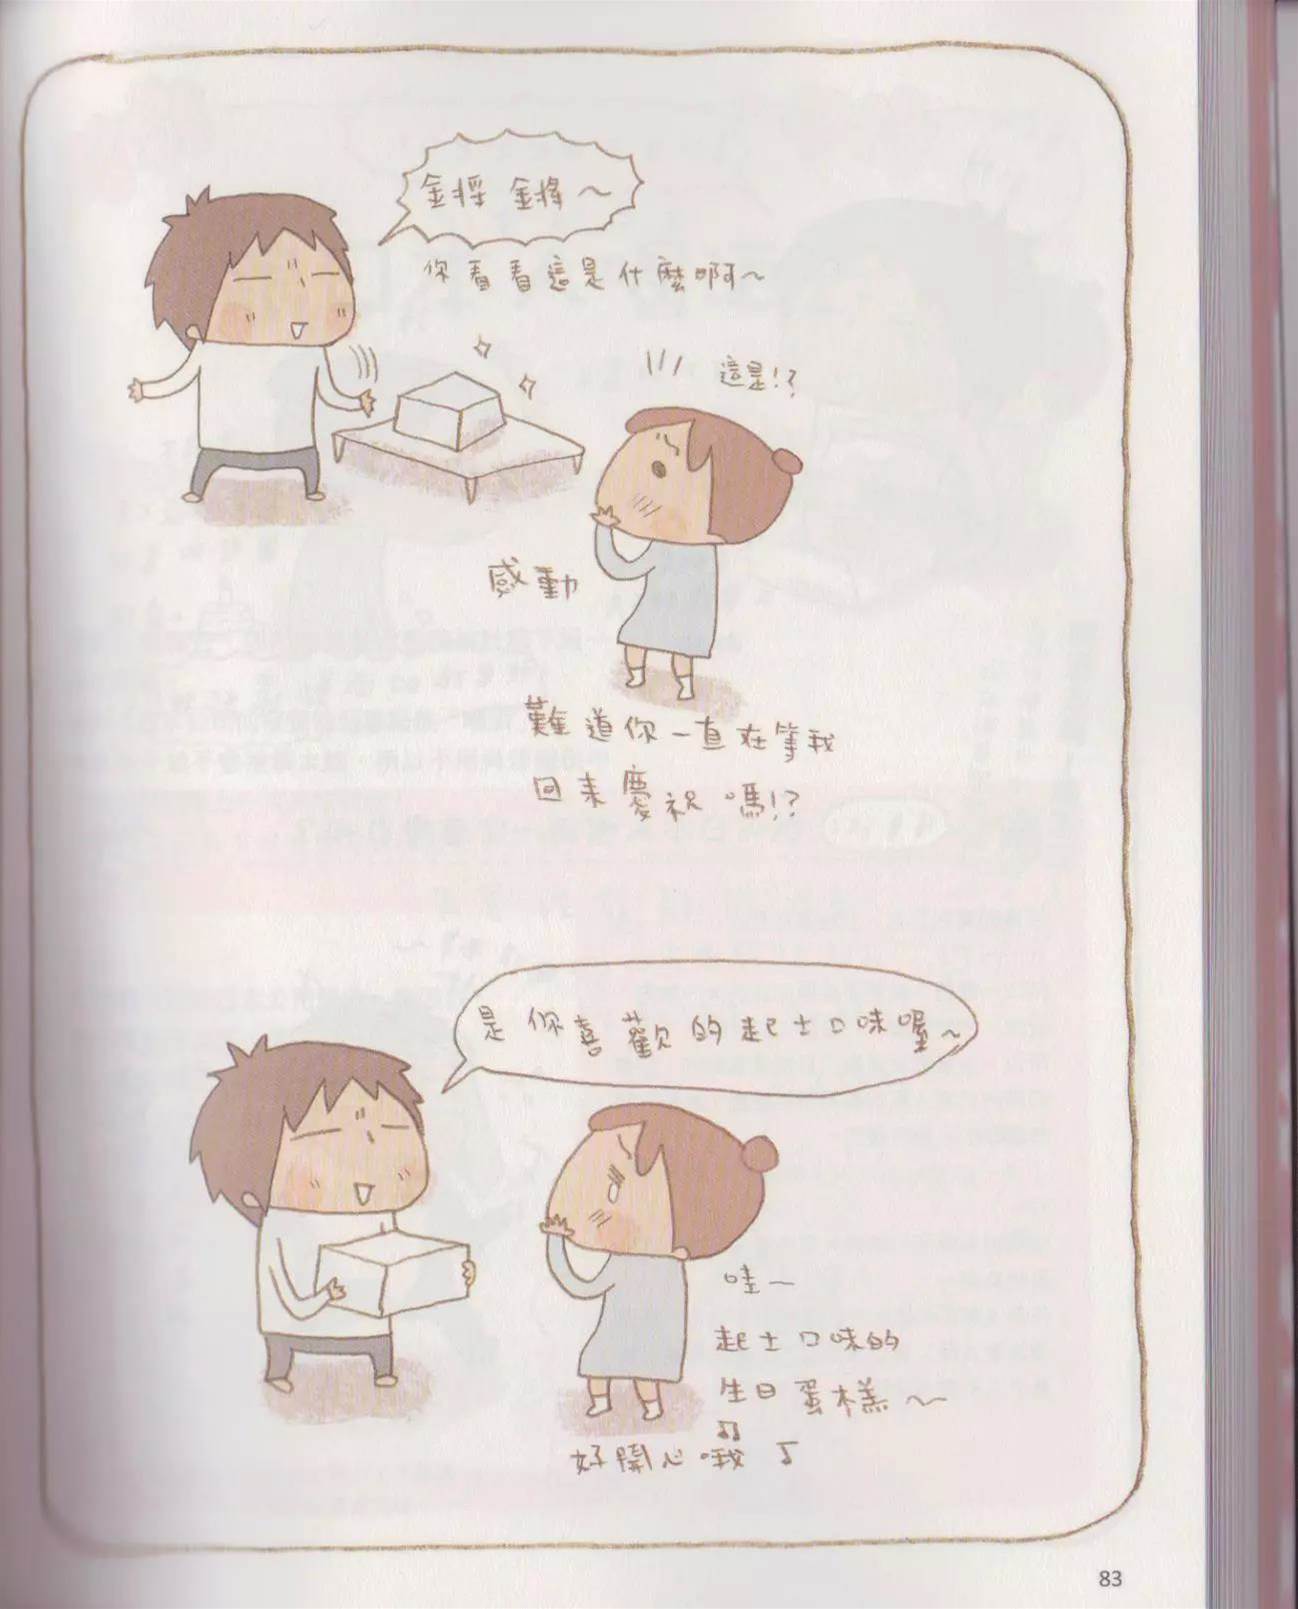 鏘鏘～
你看看這是什麼啊～
這是!?
感動
難道你一直在等我
回來慶祝嗎!?
是你喜歡的起士口味喔～
哇～
起士口味的
生日蛋糕～
好開心哦
83